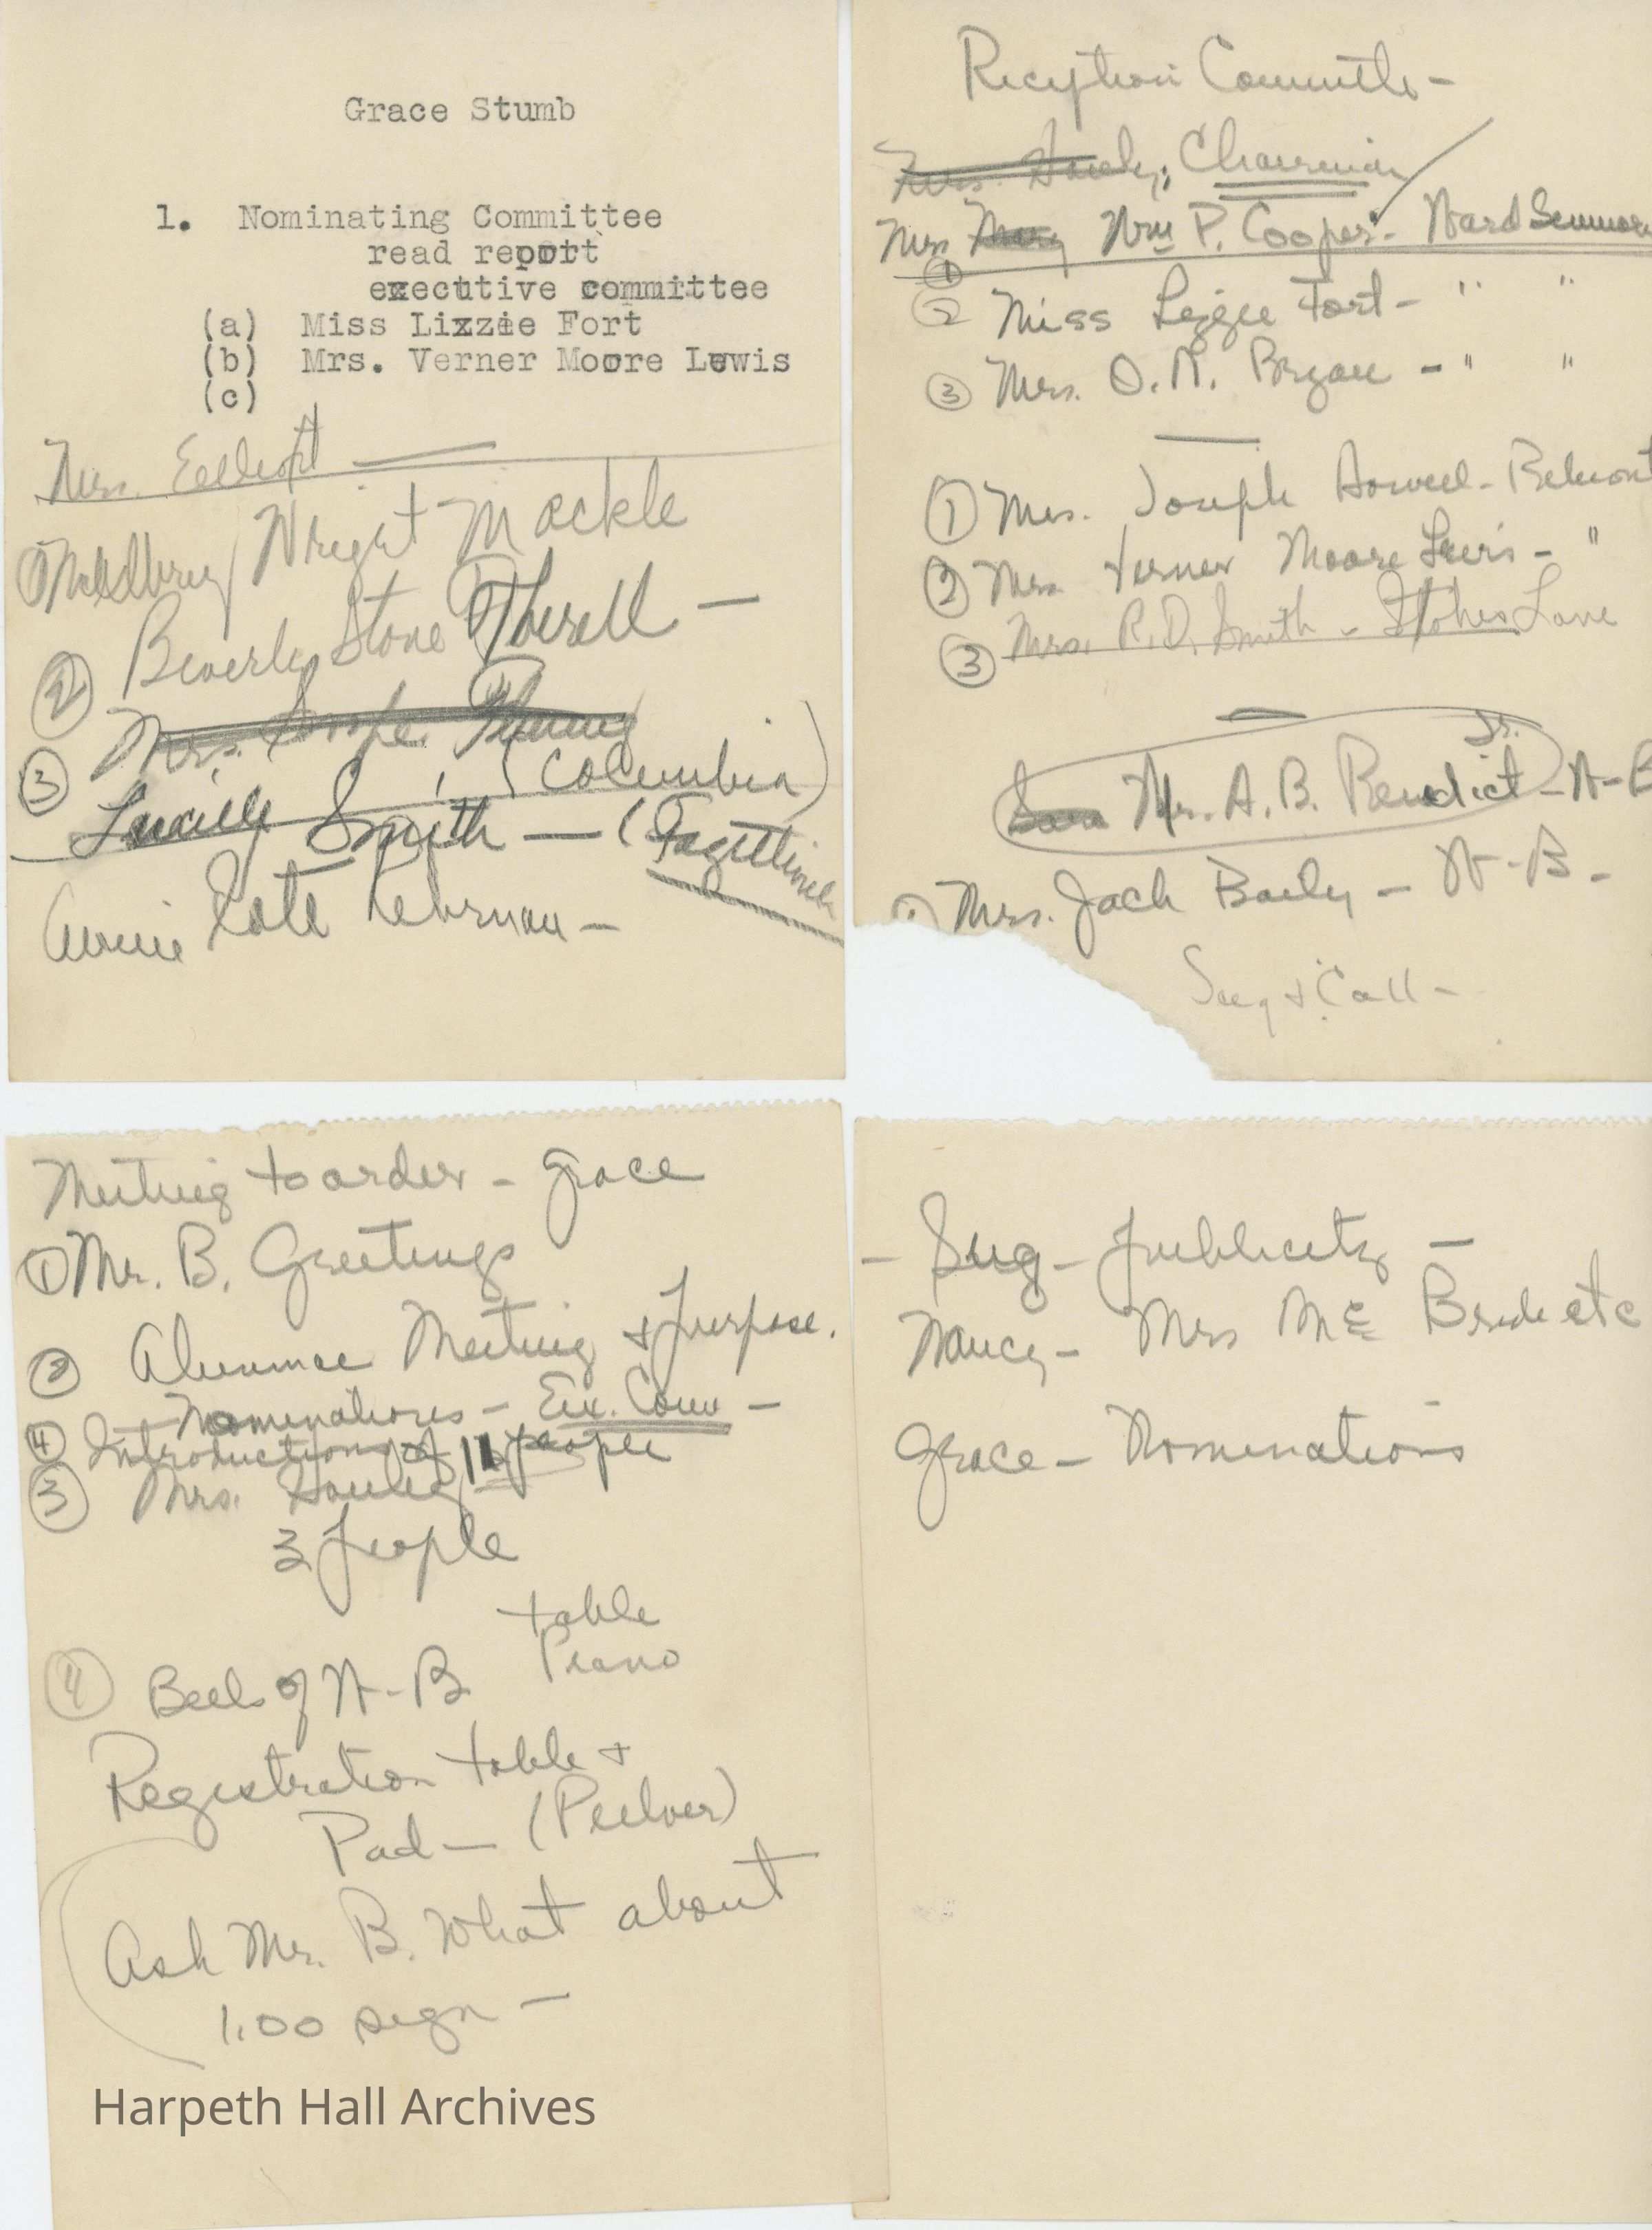 Grace Stumb
1. Nominating Committee
read report
executive committee
(a) Miss Lizzie Fort
(b) Mrs. Verner Moore Lewis
(c)
Mrs. Elliott —
① Wright Mackle
② Beverly Stone Therell —
Mrs.
③ (Columbia)
Lucille Smith — (
Annie Kate Rebman —
Reception Committee -
Mrs. Hawley, Chairman
Mrs Wm P. Cooper - Ward Seminary
①
② Miss Lizzie Fort - " "
③ Mrs. O. N. Bryan - " "
① Mrs. Joseph Howell - Belmont
② Mrs. Verner Moore Lewis - "
③ Mrs. R. D. Smith - Stokes Lane
Jr.
Mr. A. B. Benedict - W-B
① Mrs. Jack Baily - W-B -
Sug & Call -
Meeting to order - Grace
① Mr. B. Greetings
② Alumnae Meeting & Purpose.
Nominations - Ex. Com -
④ Introduction of 11 people
③ Mrs. Hawley
3 People
table
Piano
④ Bells of W-B
Registration table &
Pad — (
Ask Mr. B. What about
1.00 sign —
- Sug - Publicity -
Nancy - Mrs Mc Bride etc
Grace - Nominations
Harpeth Hall Archives